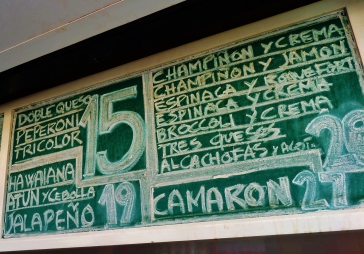 DOBLE QUESO
PEPERONI
TRICOLOR
15
HAWAIANA
ATUN y CEBOLLA
JALAPEÑO
19
CHAMPIÑON Y CREMA
CHAMPIÑON Y JAMON
ESPINACA y ROQUEFORT
ESPINACA y CREMA
BROCOLI y CREMA
TRES QUESOS
ALCACHOFAS y
20
CAMARON 27